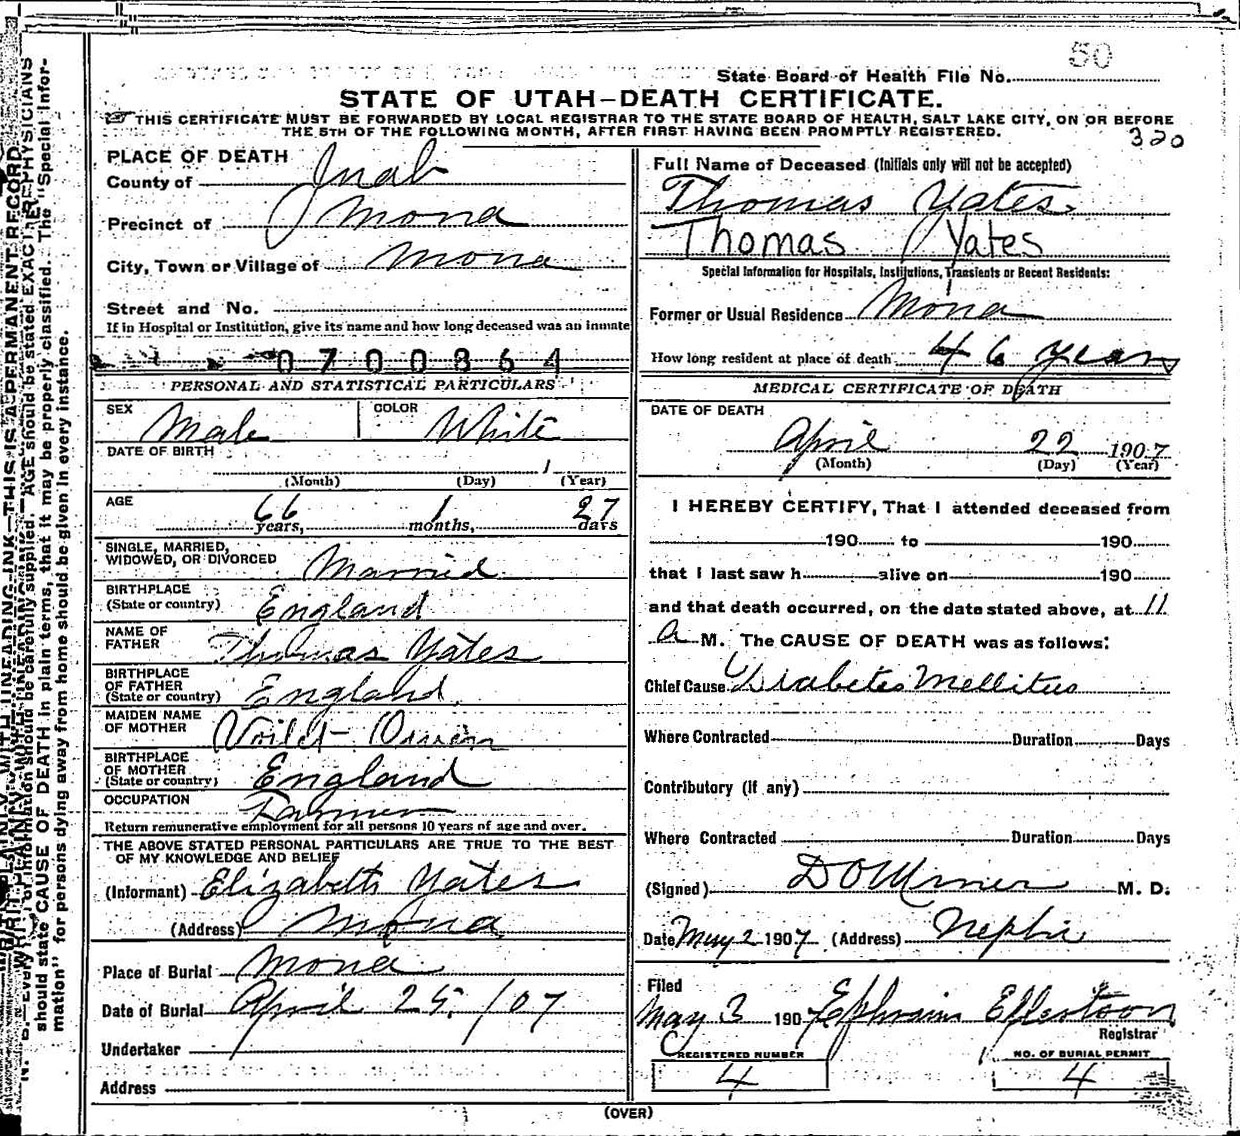 50
State Board of Health File No.
STATE OF UTAH—DEATH CERTIFICATE.
THIS CERTIFICATE MUST BE FORWARDED BY LOCAL REGISTRAR TO THE STATE BOARD OF HEALTH, SALT LAKE CITY, ON OR BEFORE
THE 5TH OF THE FOLLOWING MONTH, AFTER FIRST HAVING BEEN PROMPTLY REGISTERED.
320
PLACE OF DEATH
County of Juab
Precinct of Mona
City, Town or Village of Mona
Street and No.
If in Hospital or Institution, give its name and how long deceased was an inmate
0700864
PERSONAL AND STATISTICAL PARTICULARS
SEX Male COLOR White
DATE OF BIRTH
1
(Month) (Day) (Year)
AGE 66 years, 1 months, 27 days
SINGLE, MARRIED,
WIDOWED, OR DIVORCED Married
BIRTHPLACE
(State or country) England
NAME OF
FATHER Thomas Yates
BIRTHPLACE
OF FATHER
(State or country) England
MAIDEN NAME
OF MOTHER
BIRTHPLACE
OF MOTHER
(State or country) England
OCCUPATION Farmer
Return remunerative employment for all persons 10 years of age and over.
THE ABOVE STATED PERSONAL PARTICULARS ARE TRUE TO THE BEST
OF MY KNOWLEDGE AND BELIEF
(Informant) Elizabeth Yates
(Address) Mona
Place of Burial Mona
Date of Burial April 25. /07
Undertaker
Address
Full Name of Deceased (Initials only will not be accepted)
Thomas Yates
Thomas Yates
Special Information for Hospitals, Institutions, Transients or Recent Residents:
Former or Usual Residence Mona
How long resident at place of death 46 years
MEDICAL CERTIFICATE OF DEATH
DATE OF DEATH
April 22 1907
(Month) (Day) (Year)
I HEREBY CERTIFY, That I attended deceased from
190 to 190
that I last saw h alive on 190
and that death occurred, on the date stated above, at 11
a M. The CAUSE OF DEATH was as follows:
Chief Cause Diabetes Mellitus
Where Contracted Duration Days
Contributory (if any)
Where Contracted Duration Days
(Signed) M. D.
Date May 2 1907 (Address) Nephi
Filed
May 3 1907 Ephraim
Registrar
REGISTERED NUMBER
4
NO. OF BURIAL PERMIT
4
(OVER)
AGE should be stated EXACTLY. PHYSICIANS
should state CAUSE OF DEATH in plain terms, that it may be properly classified. The "Special Infor-
mation" for persons dying away from home should be given in every instance.